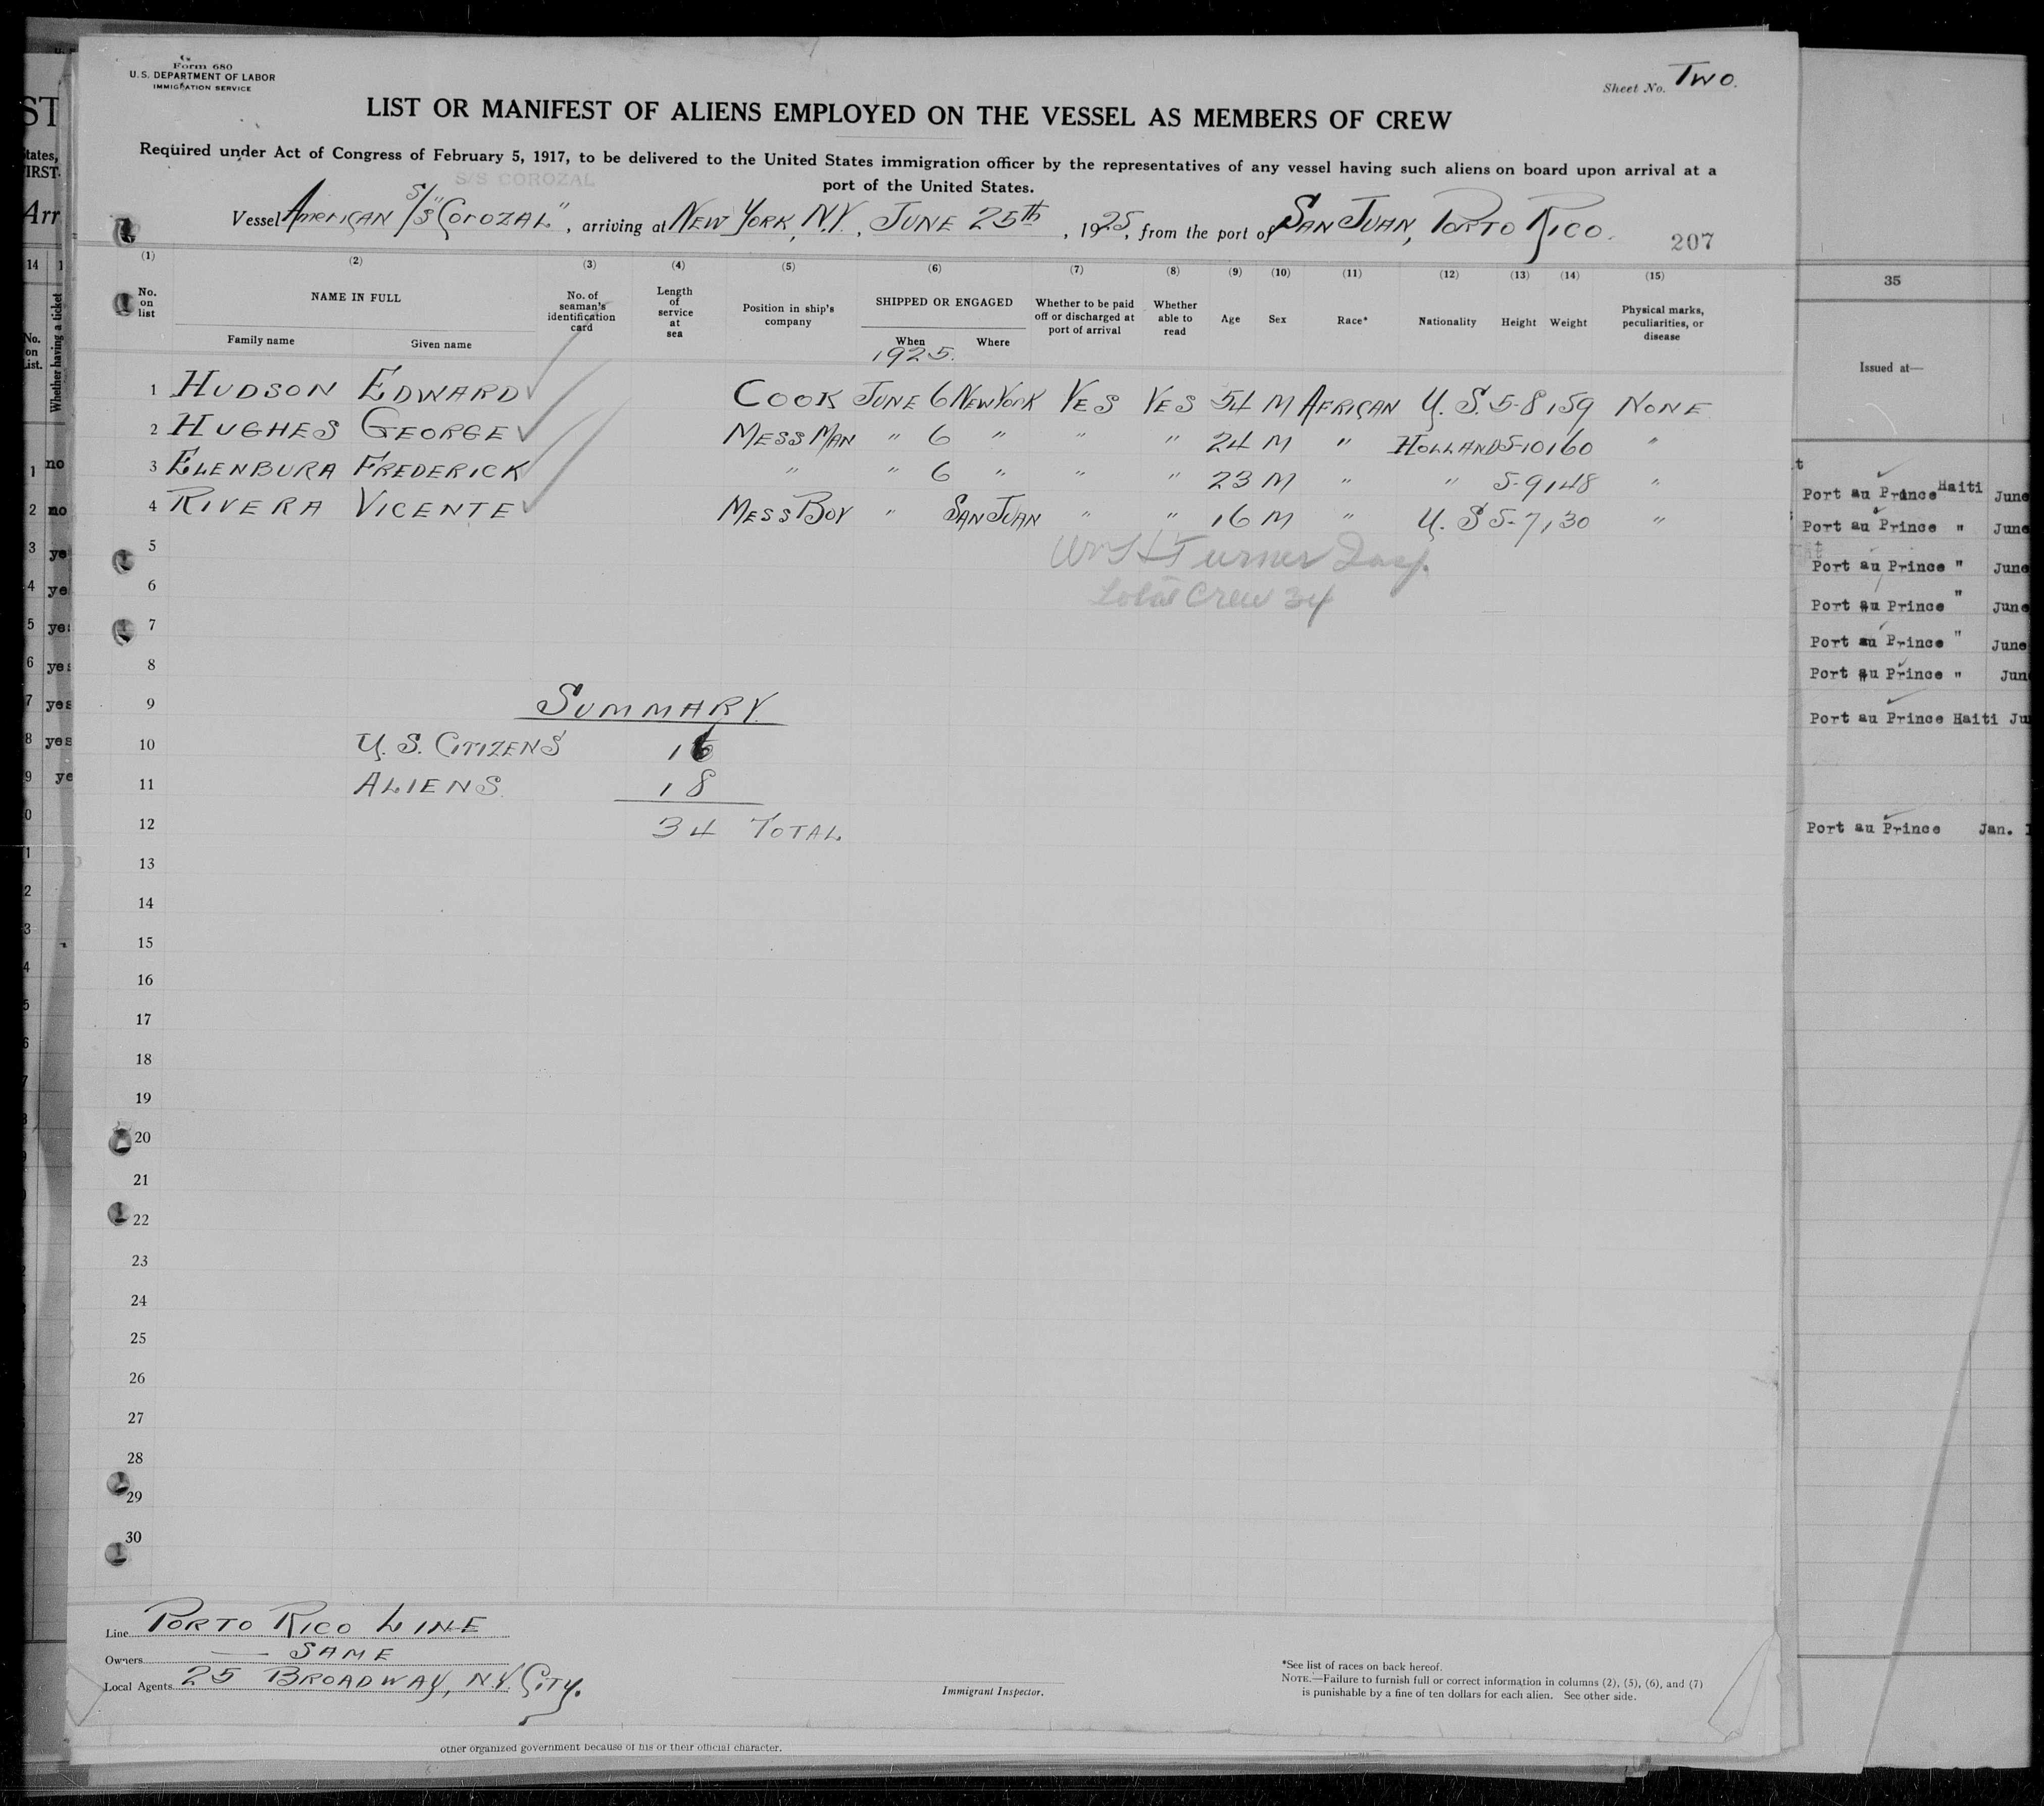 Form 680
U. S. DEPARTMENT OF LABOR
IMMIGRATION SERVICE
Sheet No. Two.
LIST OR MANIFEST OF ALIENS EMPLOYED ON THE VESSEL AS MEMBERS OF CREW
Required under Act of Congress of February 5, 1917, to be delivered to the United States immigration officer by the representatives of any vessel having such aliens on board upon arrival at a
port of the United States.
S/S COROZAL
Vessel AMERICAN S/S "COROZAL", arriving at NEW YORK, N.Y., JUNE 25th, 1925, from the port of SAN JUAN, PORTO RICO.
207
(1) (2) (3) (4) (5) (6) (7) (8) (9) (10) (11) (12) (13) (14) (15)
No. on list
NAME IN FULL
Family name Given name
No. of seaman's identification card
Length of service at sea
Position in ship's company
SHIPPED OR ENGAGED
When Where
1925.
Whether to be paid off or discharged at port of arrival
Whether able to read
Age
Sex
Race*
Nationality
Height
Weight
Physical marks, peculiarities, or disease
1 HUDSON EDWARD COOK JUNE 6 NEW YORK YES YES 54 M AFRICAN U. S. 5-8 159 NONE
2 HUGHES GEORGE MESS MAN " 6 " " " 24 M " HOLLAND 5-10 160 "
3 ELENBURA FREDERICK " " 6 " " " 23 M " " 5-9 148 "
4 RIVERA VICENTE MESS BOY " SAN JUAN " " 16 M " U. S 5-7 130 "
5
Turner
6
Total Crew 34
7
8
9 SUMMARY
10 U. S. CITIZENS 16
11 ALIENS. 18
12 34 TOTAL
13
14
15
16
17
18
19
20
21
22
23
24
25
26
27
28
29
30
Line PORTO RICO LINE
Owners SAME
Local Agents 25 BROADWAY, N.Y. CITY.
Immigrant Inspector.
*See list of races on back hereof.
NOTE.—Failure to furnish full or correct information in columns (2), (5), (6), and (7)
is punishable by a fine of ten dollars for each alien. See other side.
other organized government because of his or their official character.
ST
tates,
IRST
Arr
14
No. on List.
Whether having a ticket
1 no
2 no
3 ye
4 ye
5 yes
6 yes
7 yes
8 yes
9 ye
35
Issued at—
Port au Prince Haiti June
Port au Prince " June
Port au Prince " June
Port au Prince " June
Port au Prince " June
Port au Prince " Jun
Port au Prince Haiti Ju
Port au Prince Jan. 1